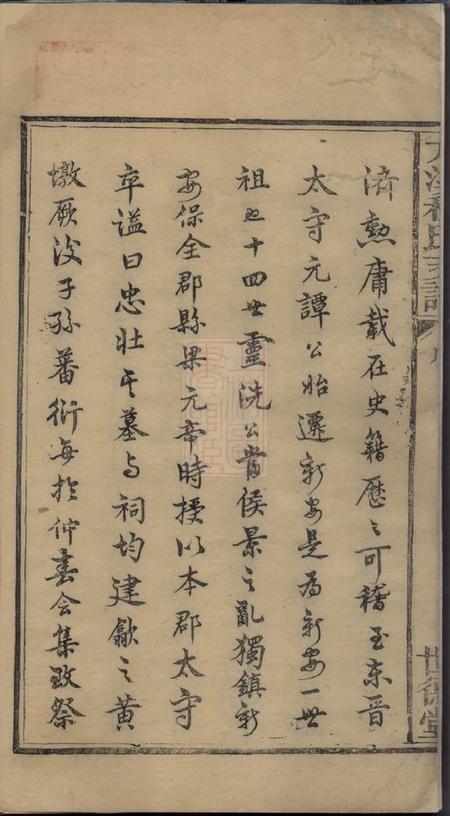 濟勲庸載在史籍歷〻可稽至東晉
太守元譚公始遷新安是為新安一世
祖也十四世靈洗公當侯景之亂獨鎮新
安保全郡縣梁元帝時授以本郡太守
卒謚曰忠壯其墓与祠均建歙之黄
墩厥後子孫蕃衍每於仲春會集致祭